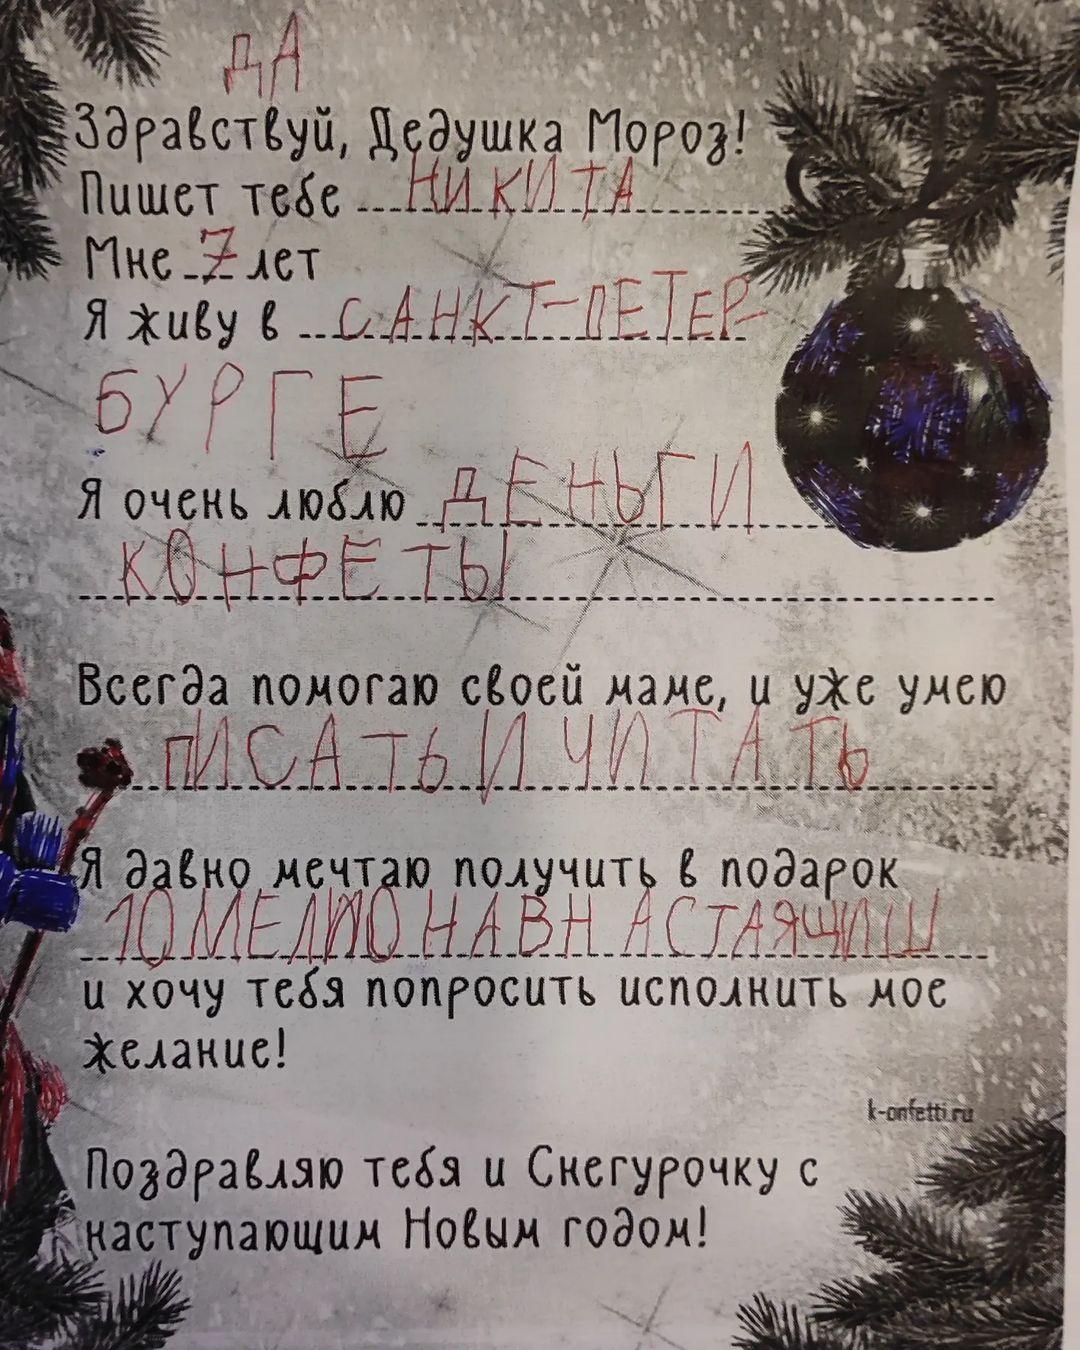 ДА
Здравствуй, Дедушка Мороз!
Пишет тебе НИКИТА
Мне 7 лет
Я живу в САНКТ-ПЕТЕР-
БУРГЕ
Я очень люблю ДЕНЬГИ
КОНФЕТЫ
Всегда помогаю своей маме, и уже умею
ПИСАТЬ И ЧИТАТЬ
Я давно мечтаю получить в подарок
10 МЕЛИОНАВ НАСТАЯЩИШ
и хочу тебя попросить исполнить мое
желание!
k-onfetti.ru
Поздравляю тебя и Снегурочку с
наступающим Новым годом!